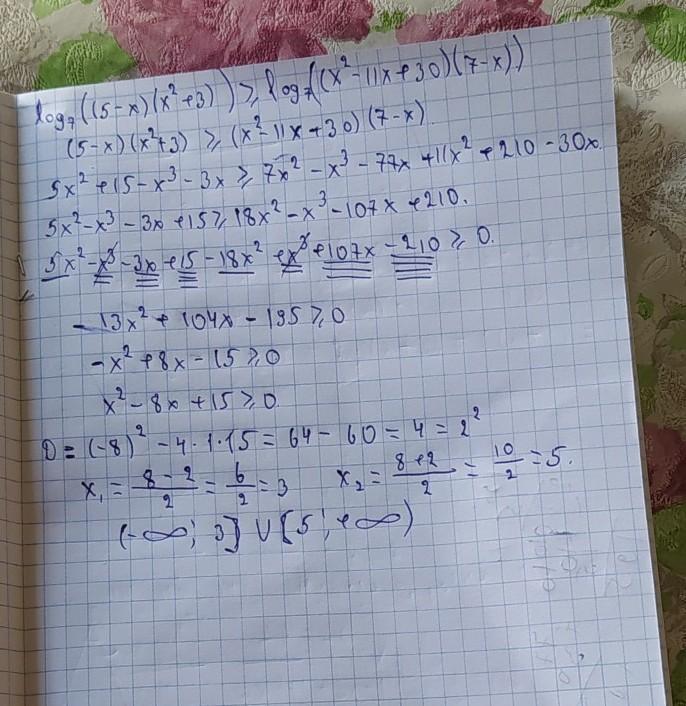 log₇((5-x)(x²+3)) ≥ log₇((x²-11x+30)(7-x))
(5-x)(x²+3) ≥ (x²-11x+30)(7-x).
5x²+15-x³-3x ≥ 7x²-x³-77x+11x²+210-30x.
5x²-x³-3x+15 ≥ 18x²-x³-107x+210.
5x²-x³-3x+15-18x²+x³+107x-210 ≥ 0.
-13x²+104x-195 ≥ 0
-x²+8x-15 ≥ 0
x²-8x+15 ≥ 0.
D = (-8)²-4·1·15 = 64-60 = 4 = 2²
x₁ = (8-2)/2 = 6/2 = 3 x₂ = (8+2)/2 = 10/2 = 5.
(-∞; 3] ∪ [5; +∞)